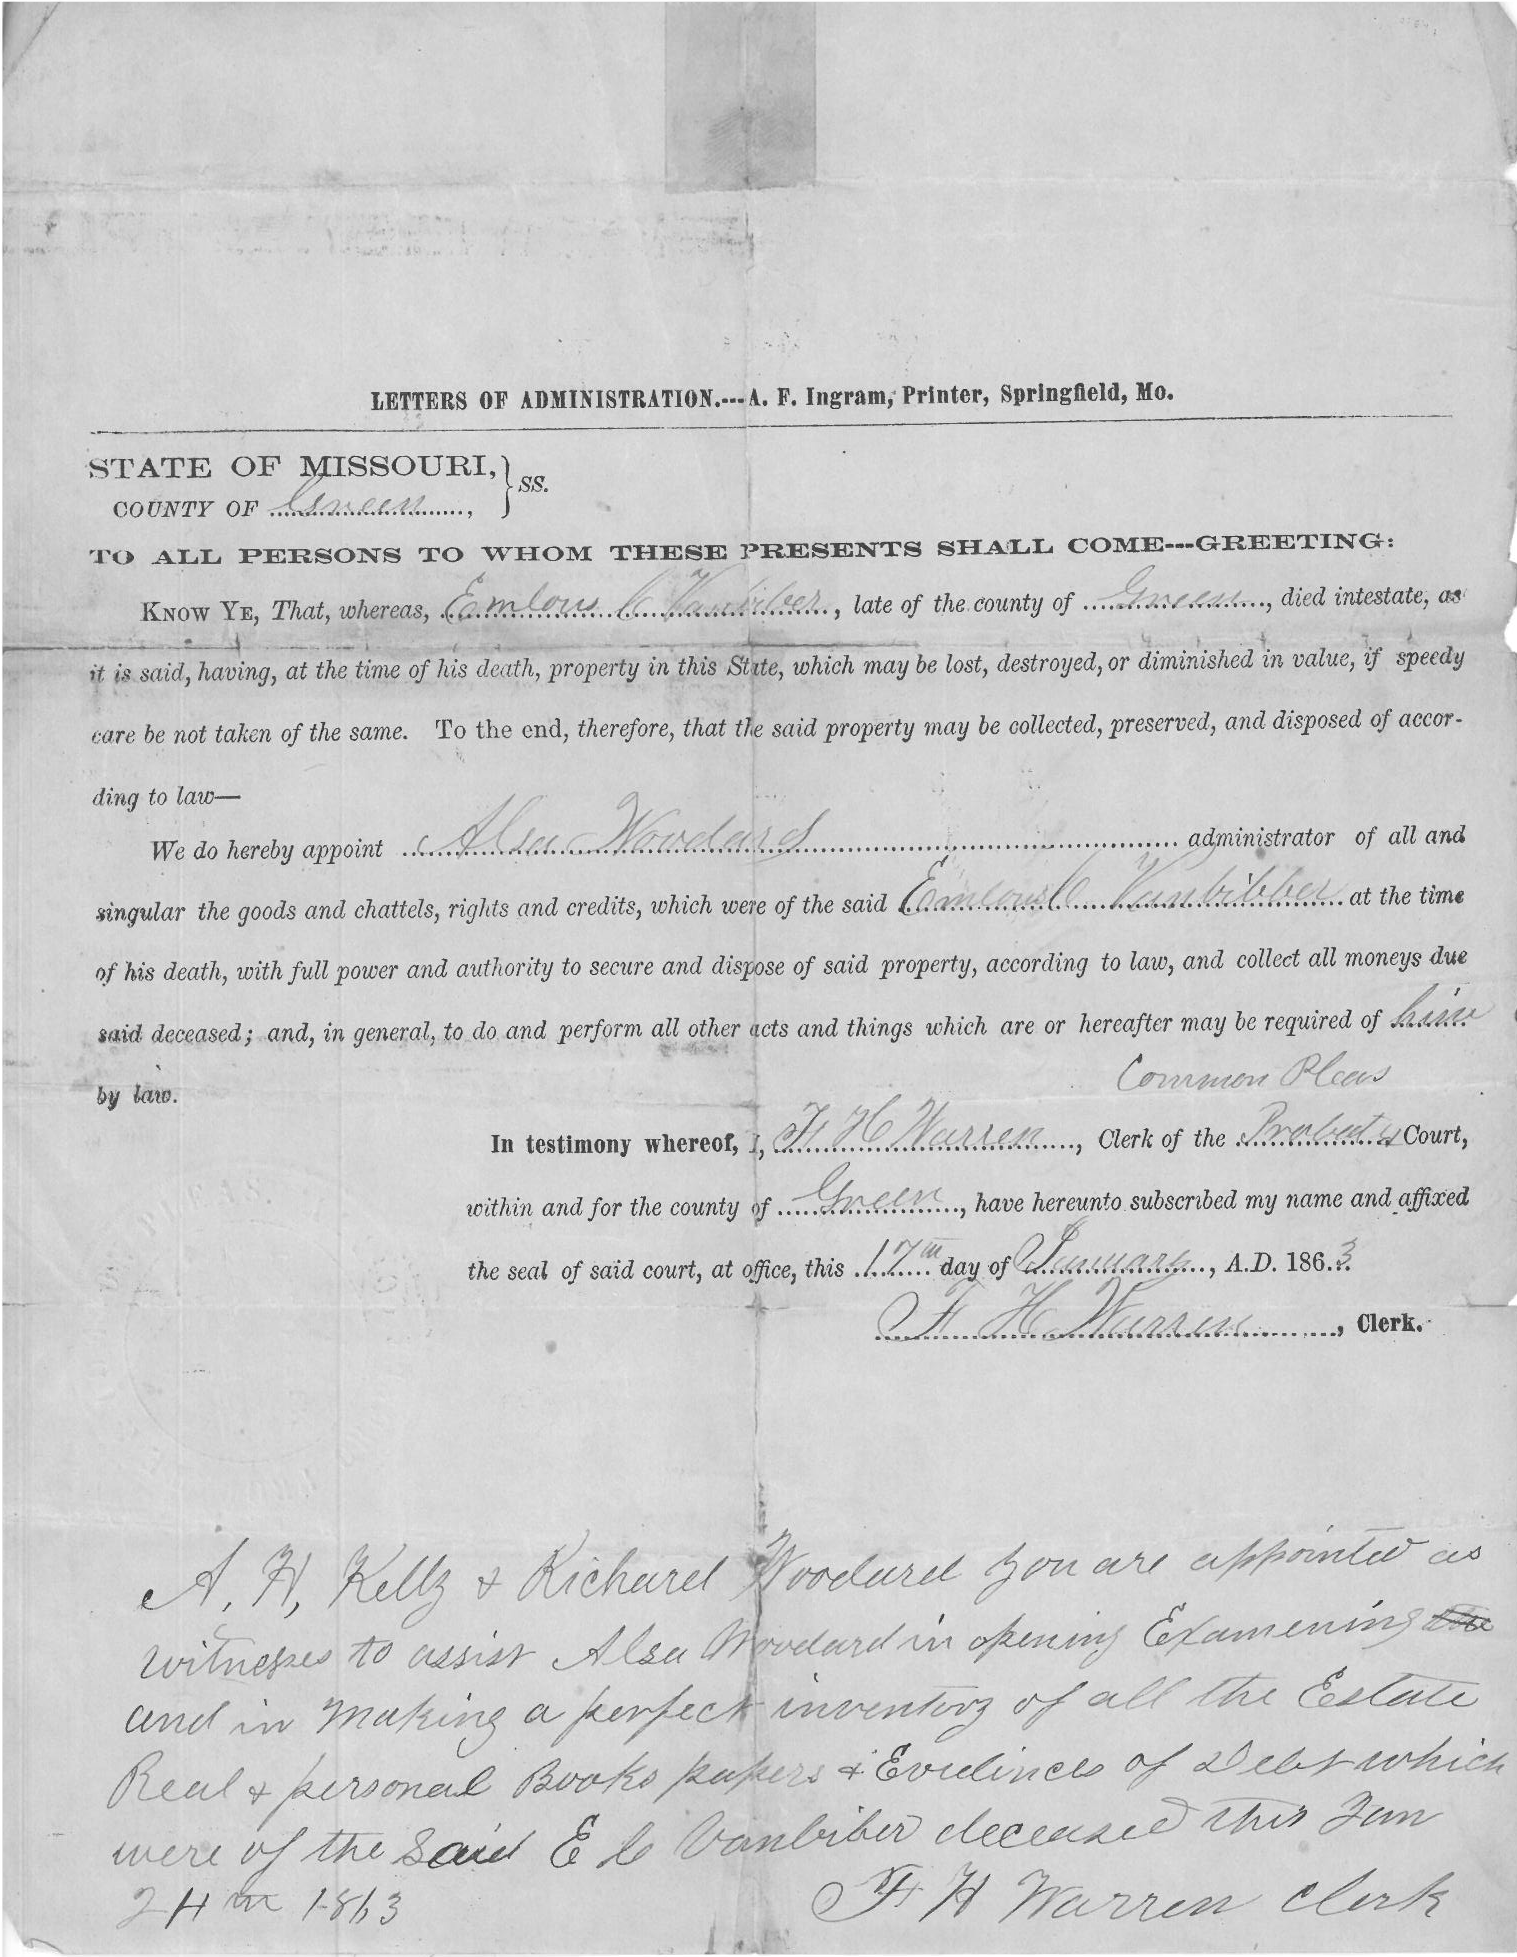 LETTERS OF ADMINISTRATION.---A. F. Ingram, Printer, Springfield, Mo.
STATE OF MISSOURI, } SS.
COUNTY OF Green,
TO ALL PERSONS TO WHOM THESE PRESENTS SHALL COME---GREETING:
KNOW YE, That, whereas, Emlous C Vanbiber, late of the county of Green, died intestate, as
it is said, having, at the time of his death, property in this State, which may be lost, destroyed, or diminished in value, if speedy
care be not taken of the same. To the end, therefore, that the said property may be collected, preserved, and disposed of accor-
ding to law—
We do hereby appoint Alsa Woodard administrator of all and
singular the goods and chattels, rights and credits, which were of the said Emlous C Vanbibber at the time
of his death, with full power and authority to secure and dispose of said property, according to law, and collect all moneys due
said deceased; and, in general, to do and perform all other acts and things which are or hereafter may be required of him
by law.
Common Pleas
In testimony whereof, I, F H Warren, Clerk of the Court,
within and for the county of Green, have hereunto subscribed my name and affixed
the seal of said court, at office, this 17th day of January, A.D. 1863.
F H Warren, Clerk.
A. H, Kelly & Richard Woodard you are appointed as
witnesses to assist Alsa Woodard in opening Examening
and in making a perfect inventory of all the Estate
Real & personal Books papers & Evidinces of Debt which
were of the Said E C Vanbiber deceased this Jan
24th 1863
F H Warren Clerk